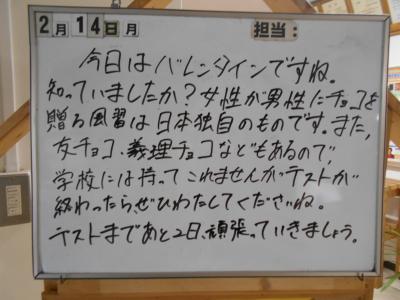 2月 14日月 担当：
今日はバレンタインですね。
知っていましたか？女性が男性にチョコを
贈る風習は日本独自のものです。また、
友チョコ、義理チョコなどもあるので、
学校には持ってこれませんが、テストが
終わったら、ぜひわたしてくださいね。
テストまであと2日、頑張っていきましょう。